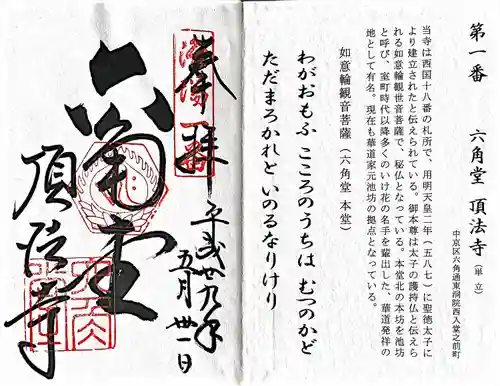 第一番　六角堂　頂法寺（単立）
中京区六角通東洞院西入堂之前町
当寺は西国十八番の札所で、用明天皇二年（五八七）に聖徳太子に
より建立されたと伝えられている。御本尊は太子の護持仏と伝えら
れる如意輪観世音菩薩で、秘仏となっている。本堂北の本坊を池坊
と呼び、室町時代以降多くのいけ花の名手を輩出した、華道発祥の
地として有名。現在も華道家元池坊の拠点となっている。
如意輪観音菩薩（六角堂 本堂）
わがおもふ こころのうちは むつのかど
ただまろかれと いのるなりけり
奉拝
洛陽一番
平成廿九年
五月卅一日
六角堂
頂法寺